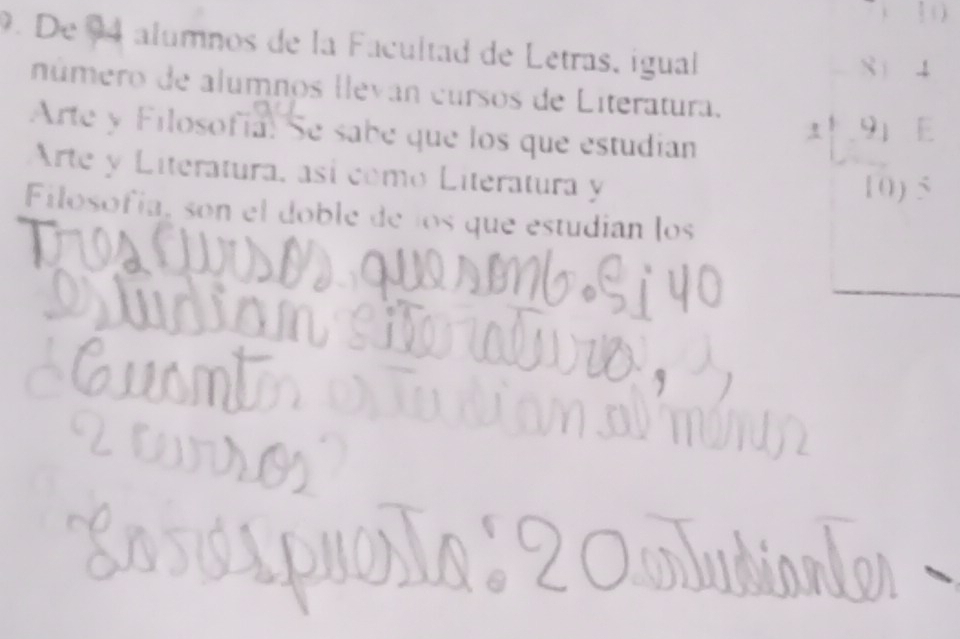 9. De 94 alumnos de la Facultad de Letras, igual
número de alumnos llevan cursos de Literatura.
Arte y Filosofía. Se sabe que los que estudian
Arte y Literatura, asi como Literatura y
Filosofía, son el doble de los que estudian los
Tres cursos, que son 6. Si 40
estudian Literatura,
¿Cuantos estudian al menos
2 cursos?
La respuesta: 20 estudiantes
10
8) 4
9) E
10) 5